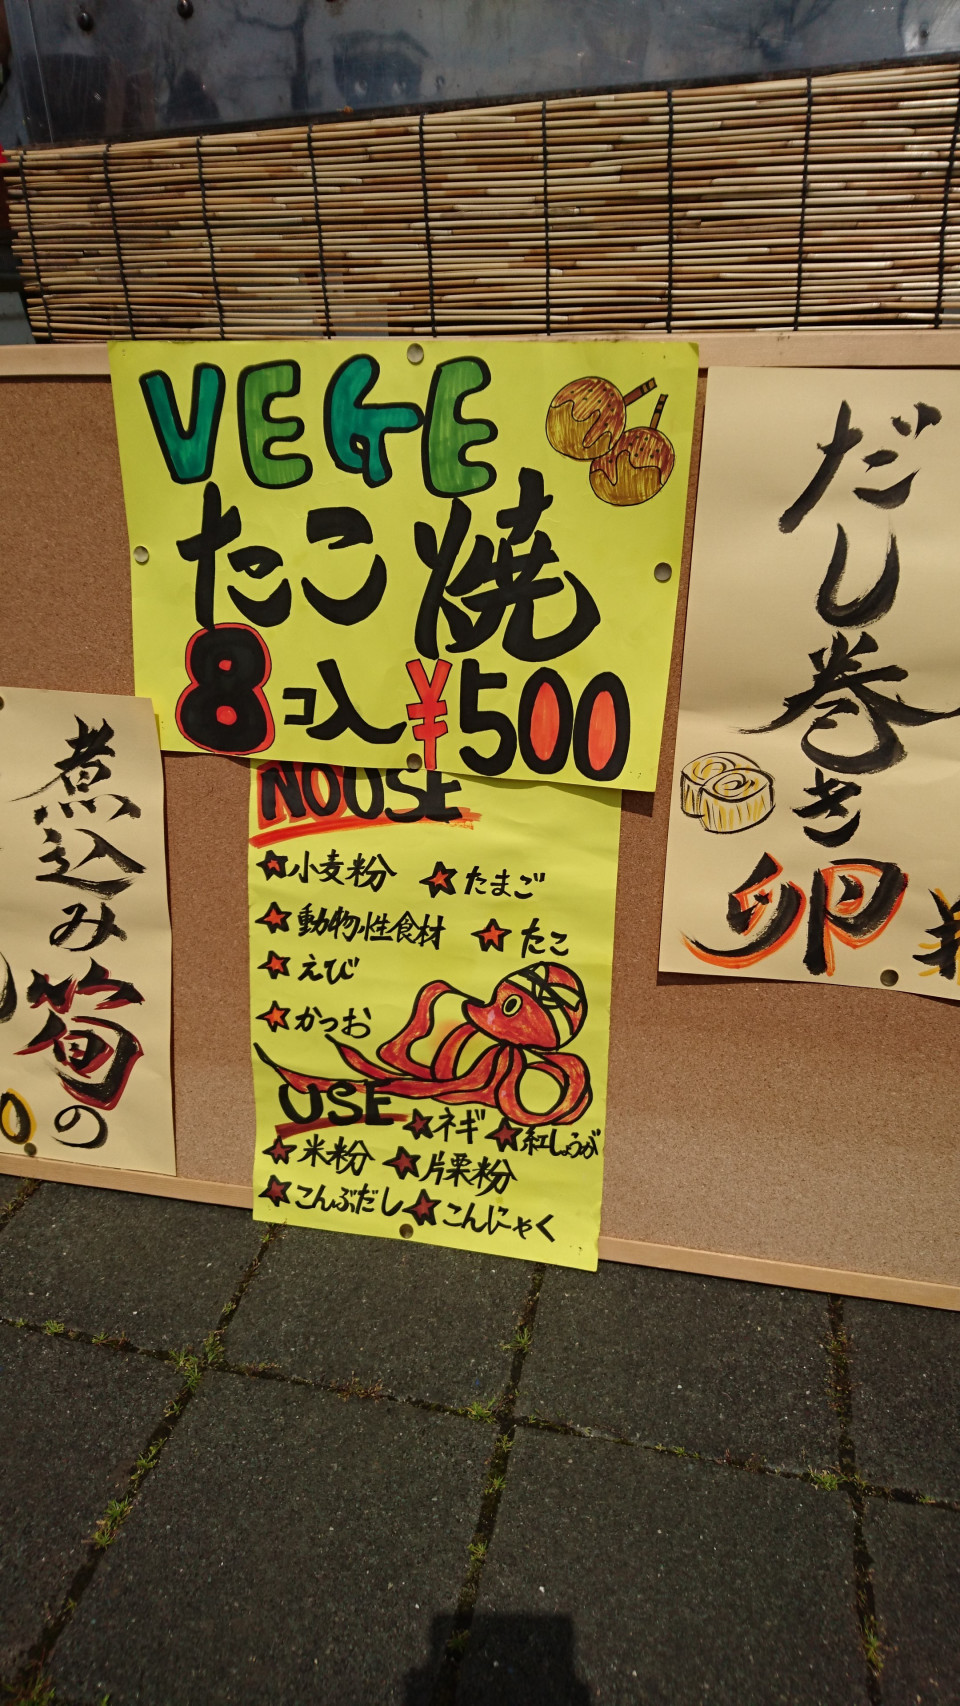 VEGE
たこ焼
8コ入 ¥500
NOUSE
★小麦粉 ★たまご
★動物性食材 ★たこ
★えび
★かつお
USE ★ネギ ★紅しょうが
★米粉 ★片栗粉
★こんぶだし ★こんにゃく
だし巻き卵
煮込み筍の